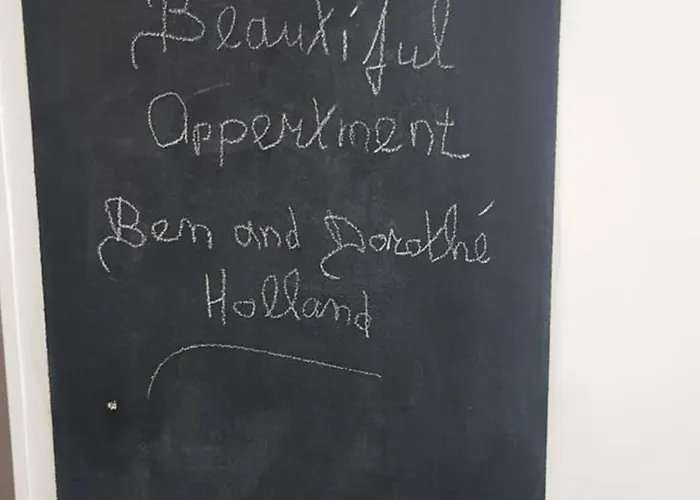 Beautiful
Appertment
Ben and Dorothé
Holland